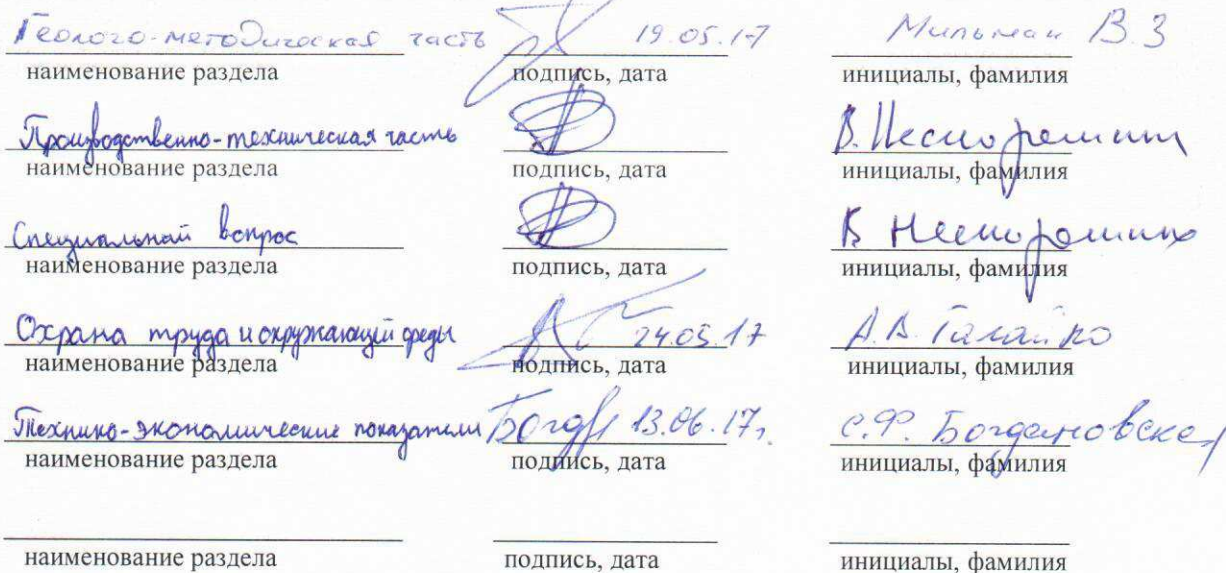 Геолого-методическая часть 19.05.17 Мильман В.З
наименование раздела подпись, дата инициалы, фамилия
Производственно-техническая часть В. Нескоромных
наименование раздела подпись, дата инициалы, фамилия
Специальный вопрос В Нескоромных
наименование раздела подпись, дата инициалы, фамилия
Охрана труда и окружающей среды 24.05.17 А.В. Галайко
наименование раздела подпись, дата инициалы, фамилия
Технико-экономические показатели 13.06.17г. С.Ф. Богдановская
наименование раздела подпись, дата инициалы, фамилия
наименование раздела подпись, дата инициалы, фамилия